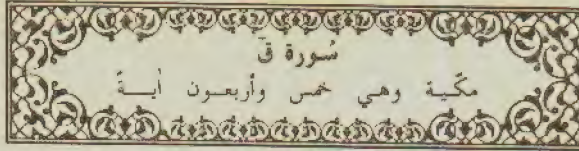 سُورة قَ
مكّية وهي خمس وأربعون أيـــةً